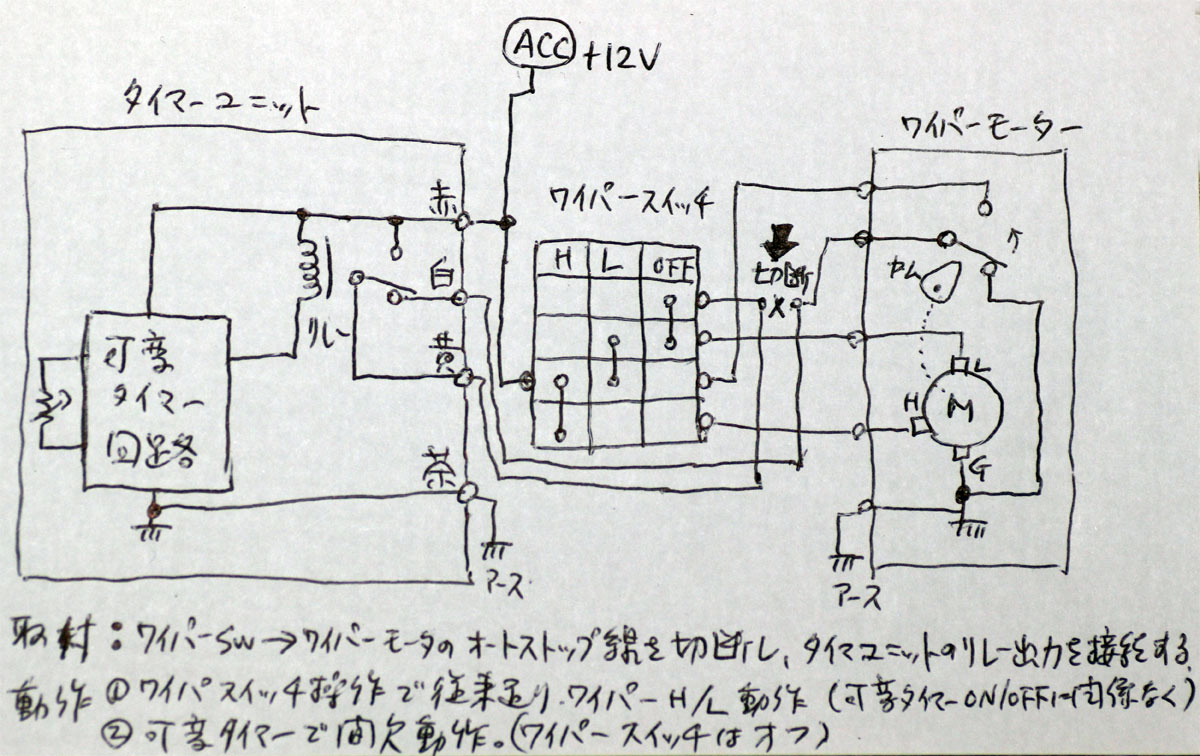 ACC +12V
タイマーユニット
ワイパーモーター
赤
ワイパースイッチ
H L OFF
切断
×
カム
白
リレー
黄
可変
タイマー
回路
L
H M
G
茶
アース
アース
取付:ワイパーSW→ワイパーモータのオートストップ線を切断し、タイマユニットのリレー出力を接続する。
動作 ①ワイパスイッチ操作で従来通り、ワイパーH/L動作(可変タイマーON/OFFに関係なく)
②可変タイマーで間欠動作。(ワイパースイッチはオフ)